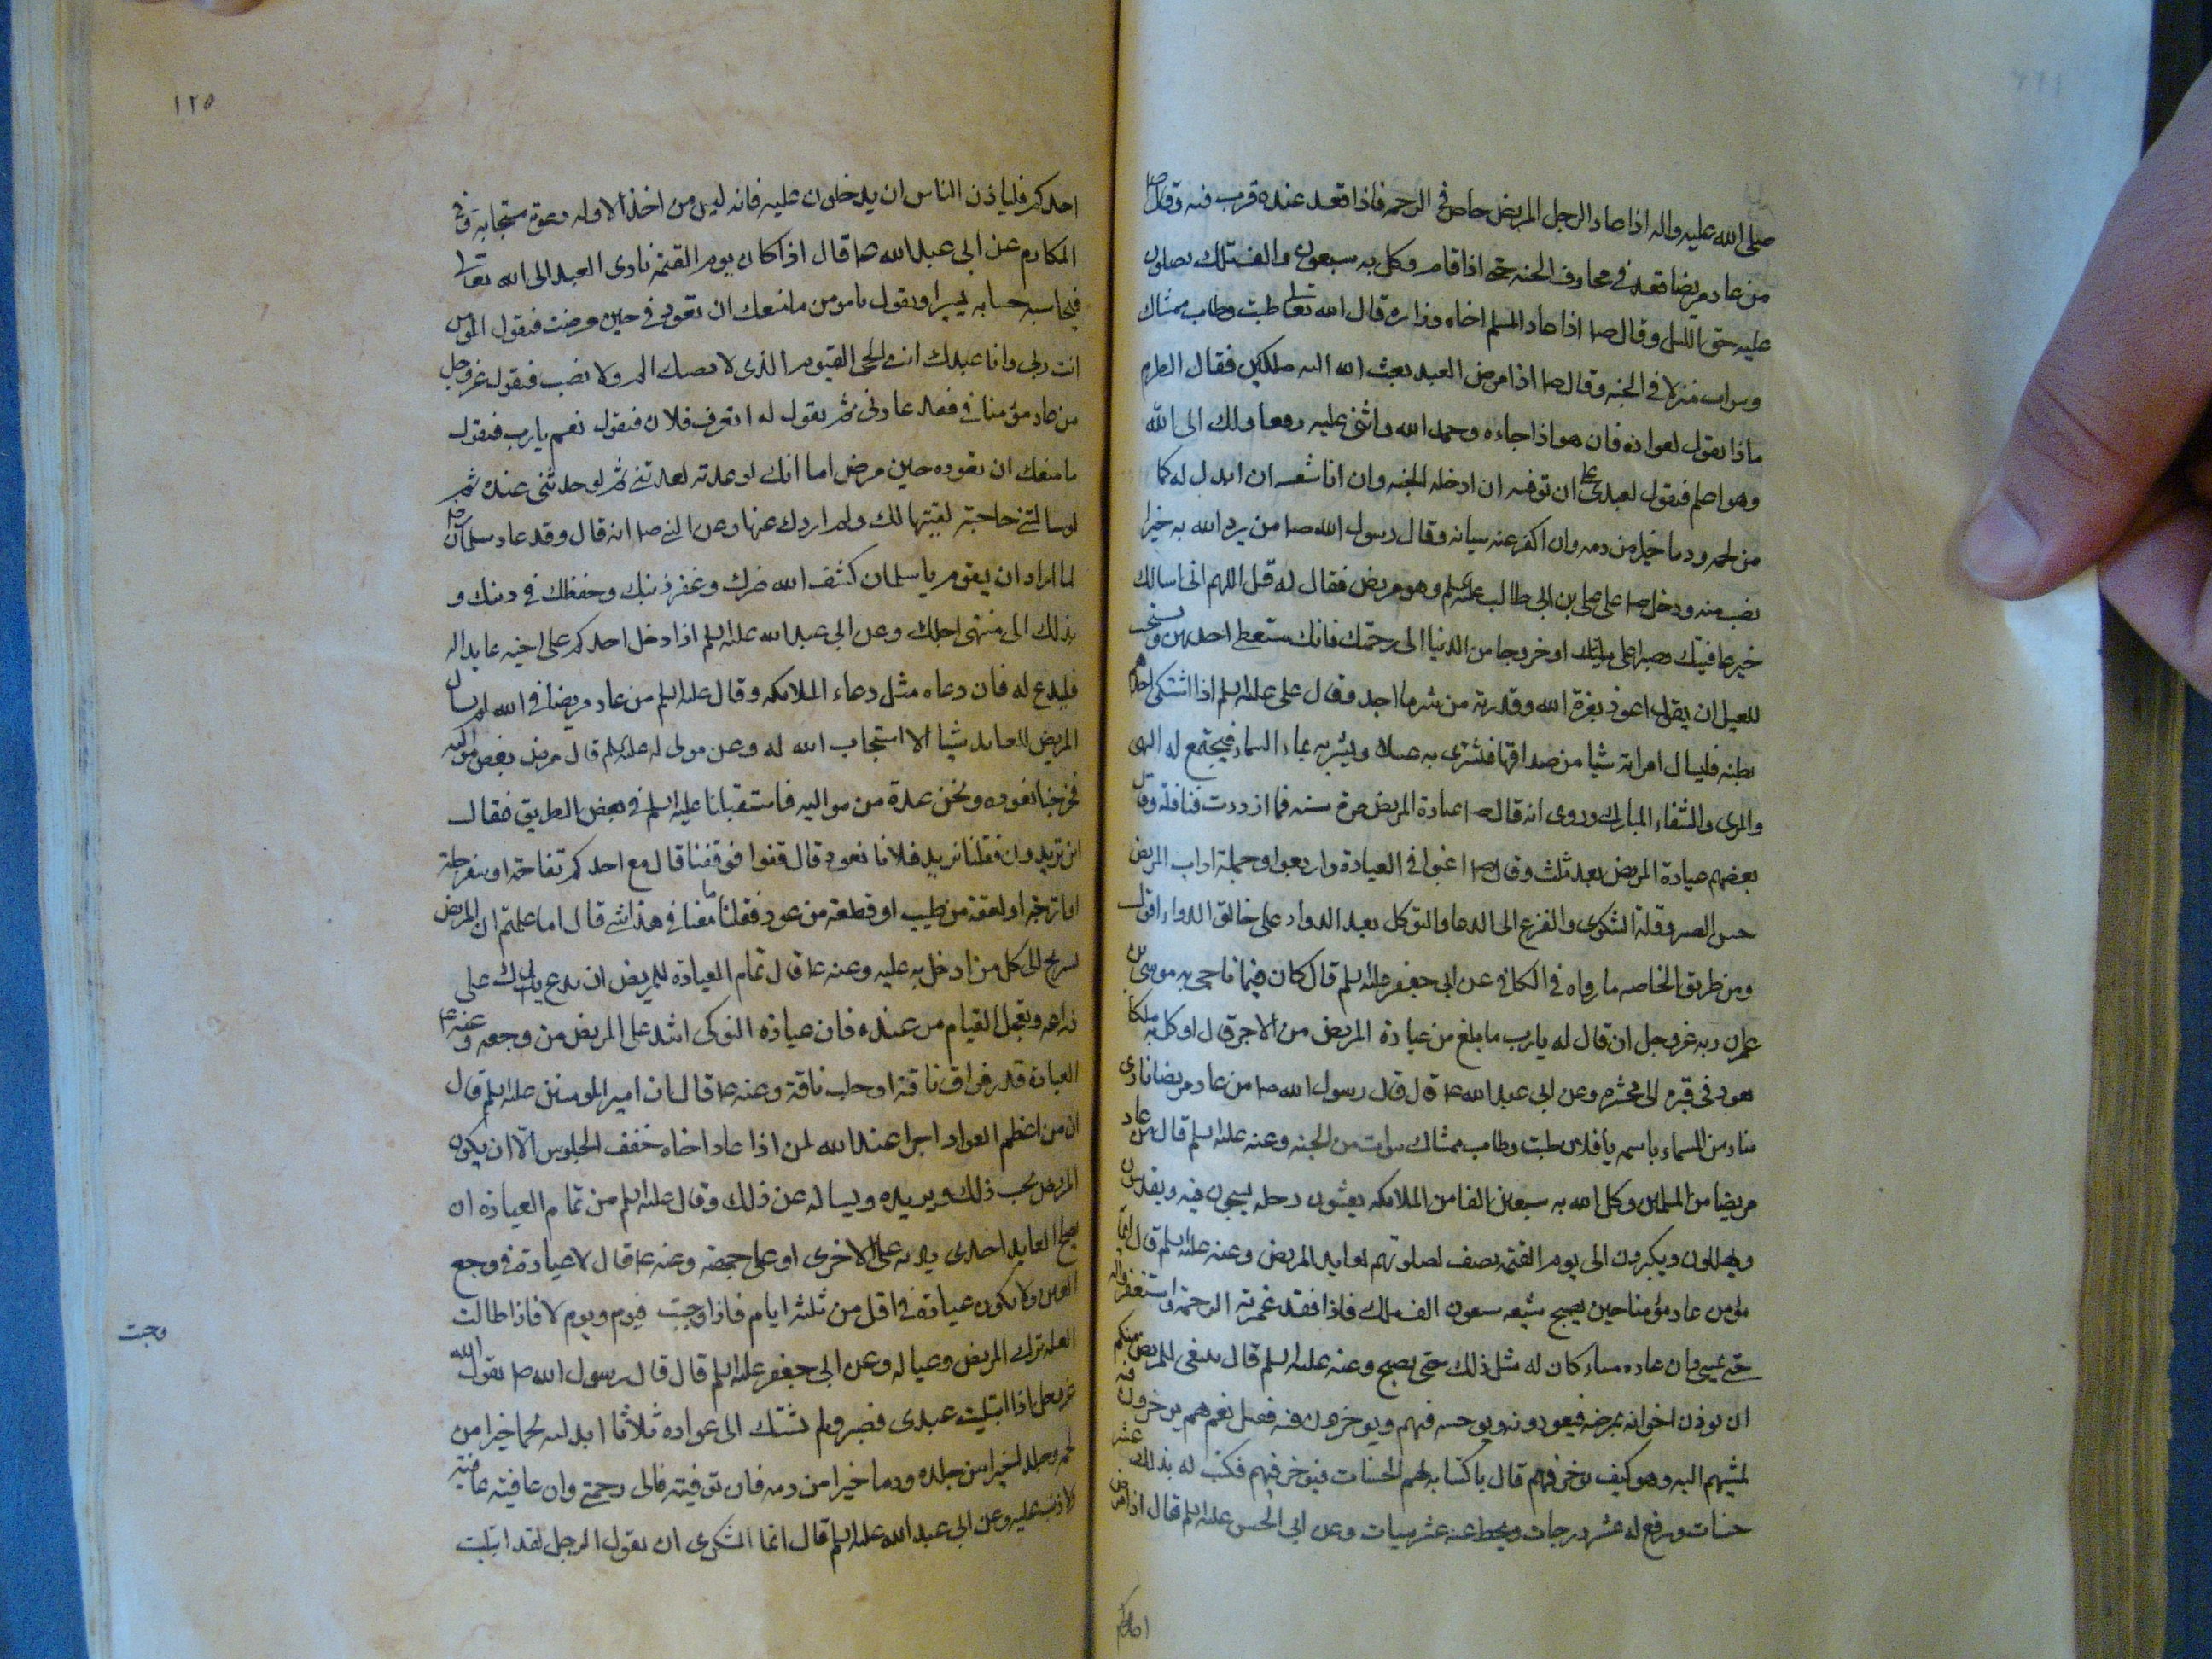 صلى الله عليه واله اذا عاد الرجل المريض خاض في الرحمة فاذا قعد عنده قرب فيه وقال ص
من عاد مريضا قعد في مخارف الجنة حتى اذا قام وكل به سبعون الف ملك يصلون
عليه حتى الليل وقال ص اذا عاد المسلم اخاه وزاره قال الله تعالى طبت وطاب ممشاك
وبوات منزلا في الجنة وقال ص اذا مرض العبد بعث الله اليه ملكين فقال انظرا
ماذا يقول لعواده فان هو اذا جاءه وحمد الله واثنى عليه رفعا ذلك الى الله
وهو اعلم فيقول لعبدي علي ان توفيته ان ادخله الجنة وان انا شفيته ان ابدل له لحما
من لحمه ودما خيرا من دمه وان اكفر عنه سيئاته وقال رسول الله ص من يرد الله به خيرا
يصب منه ودخل ص على علي بن ابي طالب عليه السلم وهو مريض فقال له قل اللهم اني اسالك
عافيتك وصبرا على بليتك او خروجا من الدنيا الى رحمتك فانك ستعطى احديهن ويستحب
للعليل ان يقول اعوذ بعزة الله وقدرته من شر ما اجد وقال علي عليه السلم اذا اشتكى احدكم
بطنه فليسال امراته شيئا من صداقها فيشتري به عسلا ويشربه بماء السماء فيجتمع له الهنئ
والمرئ والشفاء المبارك وروي انه قال ص عيادة المريض مرة سنة فما ازددت فنافلة وقال
بعضهم عيادة المريض بعد ثلث وقال ص اغبوا في العيادة واربعوا وجملة اداب المريض
حسن الصبر وقلة الشكوى والفزع الى الدعا والتوكل بعد الدواء على خالق الدواء اقول
ومن طريق الخاصة ما رواه في الكافي عن ابي جعفر عليه السلم قال كان فيما ناجى به موسى بن
عمران ربه عز وجل ان قال له يارب ما بلغ من عيادة المريض من الاجر قال اوكل به ملكا
يعوده في قبره الى محشره وعن ابي عبد الله ع قال قال رسول الله ص من عاد مريضا نادى
مناد من السماء باسمه يا فلان طبت وطاب ممشاك بثوابت من الجنة وعنه عليه السلم قال من عاد
مريضا من المسلمين وكل الله به سبعين الفا من الملائكة يغشون رحله يسبحون فيه ويقدسون
ويهللون ويكبرون الى يوم القيمة نصف لصلوتهم لعايد المريض وعنه عليه السلم قال ايما
مؤمن عاد مؤمنا حين يصبح شيعه سبعون الف ملك فاذا قعد غمرته الرحمة واستغفروا له
حتى يمسي وان عاده مساء كان له مثل ذلك حتى يصبح وعنه عليه السلم قال ينبغي للمريض منكم
ان يوذن اخوانه بمرضه فيعودونه ويوجر فيهم ويوجرون فيه فقيل نعم هم يوجرون فيه
لمشيهم اليه وهو كيف يوجر فيهم قال باكتسابه لهم الحسنات فيوجر فيهم فيكتب له بذلك عشر
حسنات ويرفع له عشر درجات ويحط عنه عشر سيئات وعن ابي الحسن عليه السلم قال اذا مرض
احدكم
١٢٥
احدكم فلياذن الناس ان يدخلون عليه فانه ليس من احد الا وله دعوة مستجابة وفي
المكارم عن ابي عبد الله ص قال اذا كان يوم القيمة نادى العبد الى الله تعالى
فيحاسبه حسابا يسيرا ويقول يا مومن ما منعك ان تعودني حين مرضت فيقول المومن
انت ربي وانا عبدك انت الحي القيوم الذي لا يصيبك الم ولا نصب فيقول عز وجل
من عاد مؤمنا فيّ فقد عادني ثم يقول له اتعرف فلان فيقول نعم يارب فيقول
ما منعك ان تعوده حين مرض اما انك لو عدته لعدتني ثم لوجدتني عنده ثم
لو سالتني حاجة لقضيتها لك ولم اردك عنها وعن النبي ص انه قال وقد عاد سلمان
لما اراد ان يقوم يا سلمان كشف الله ضرك وغفر ذنبك وحفظك في دينك و
بدنك الى منتهى اجلك وعن ابي عبد الله عليه السلم اذا دخل احدكم على اخيه عايدا له
فليدع له فان دعاه مثل دعاء الملائكة وقال عليه السلم من عاد مريضا في الله لم يسال
المريض للعايد شيئا الا استجاب الله له وعن مولى له عليه السلم قال مرض بعض مواليه
فخرجنا نعوده ونحن عدة من مواليه فاستقبلنا عليه السلم في بعض الطريق فقال
اين تريدون فقلنا نريد فلانا نعوده قال قفوا فوقفنا قال مع احدكم تفاحة او سفرجلة
او اترجة او لعقة من طيب او قطعة من عود فقلنا ما معنا في هذا شئ قال اما علمتم ان المريض
يستريح الى كل من ادخل به عليه وعنه ع قال تمام العيادة للمريض ان تدع يدك على
ذراعه وتعجل القيام من عنده فان عيادة النوكى اشد على المريض من وجعه وعنه ع
العيادة قدر فواق ناقة او حلب ناقة وعنه ع قال ان امير المومنين عليه السلم قال
ان من اعظم العواد اجرا عند الله لمن اذا عاد اخاه خفف الجلوس الا ان يكون
المريض يحب ذلك ويريده ويساله عن ذلك وقال عليه السلم من تمام العيادة ان
يضع العايد احدى يديه على الاخرى او على جبهته وعنه ع قال لا عيادة في وجع
العين ولا يكون عيادة في اقل من ثلثة ايام فاذا وجبت فيوم ويوم لا فاذا طالت
وجبت
العلة ترك المريض وعياله وعن ابي جعفر عليه السلم قال قال رسول الله ص يقول الله
عز وجل اذا ابتليت عبدي فصبر ولم يشتك الى عواده ثلاثا ابدلته لحما خيرا من
لحمه وجلدا خيرا من جلده ودما خيرا من دمه فان توفيته فالى رحمتي وان عافيته عافيته
لا ذنب عليه وعن ابي عبد الله عليه السلم قال انما الشكوى ان يقول الرجل لقد ابتليت